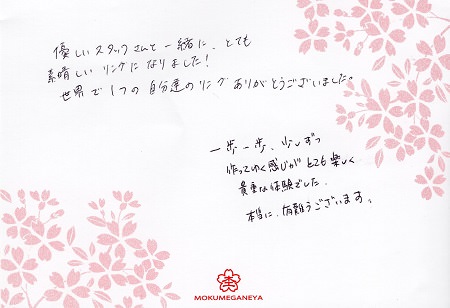 優しいスタッフさんと一緒に、とても
素晴しいリングになりました!
世界で1つの自分達のリングありがとうございました。
一歩一歩、少しずつ
作ってゆく感じがとても楽しく
貴重な体験でした。
本当に、有難うございます。
MOKUMEGANEYA